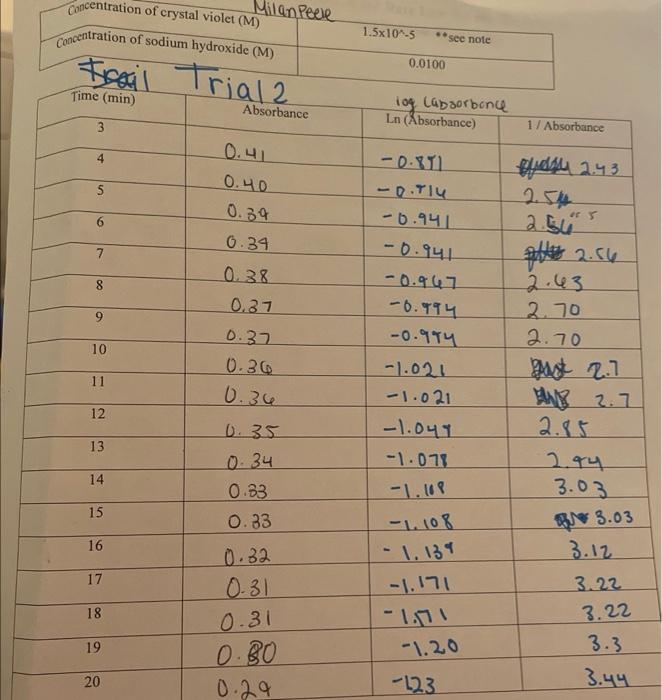 Milan Peele
Concentration of crystal violet (M) 1.5x10^-5 **see note
Concentration of sodium hydroxide (M) 0.0100
Trial 2
log (absorbance
Time (min) Absorbance Ln (Absorbance) 1 / Absorbance
3 0.41 -0.891 2.43
4 0.40 -0.916 2.5
5 0.39 -0.941 2.56
6 0.39 -0.941 2.56
7 0.38 -0.967 2.63
8 0.37 -0.994 2.70
9 0.37 -0.994 2.70
10 0.36 -1.021 2.7
11 0.36 -1.021 2.7
12 0.35 -1.049 2.85
13 0.34 -1.078 2.94
14 0.33 -1.108 3.03
15 0.33 -1.108 3.03
16 0.32 -1.139 3.12
17 0.31 -1.171 3.22
18 0.31 -1.171 3.22
19 0.30 -1.20 3.3
20 0.29 -1.23 3.44